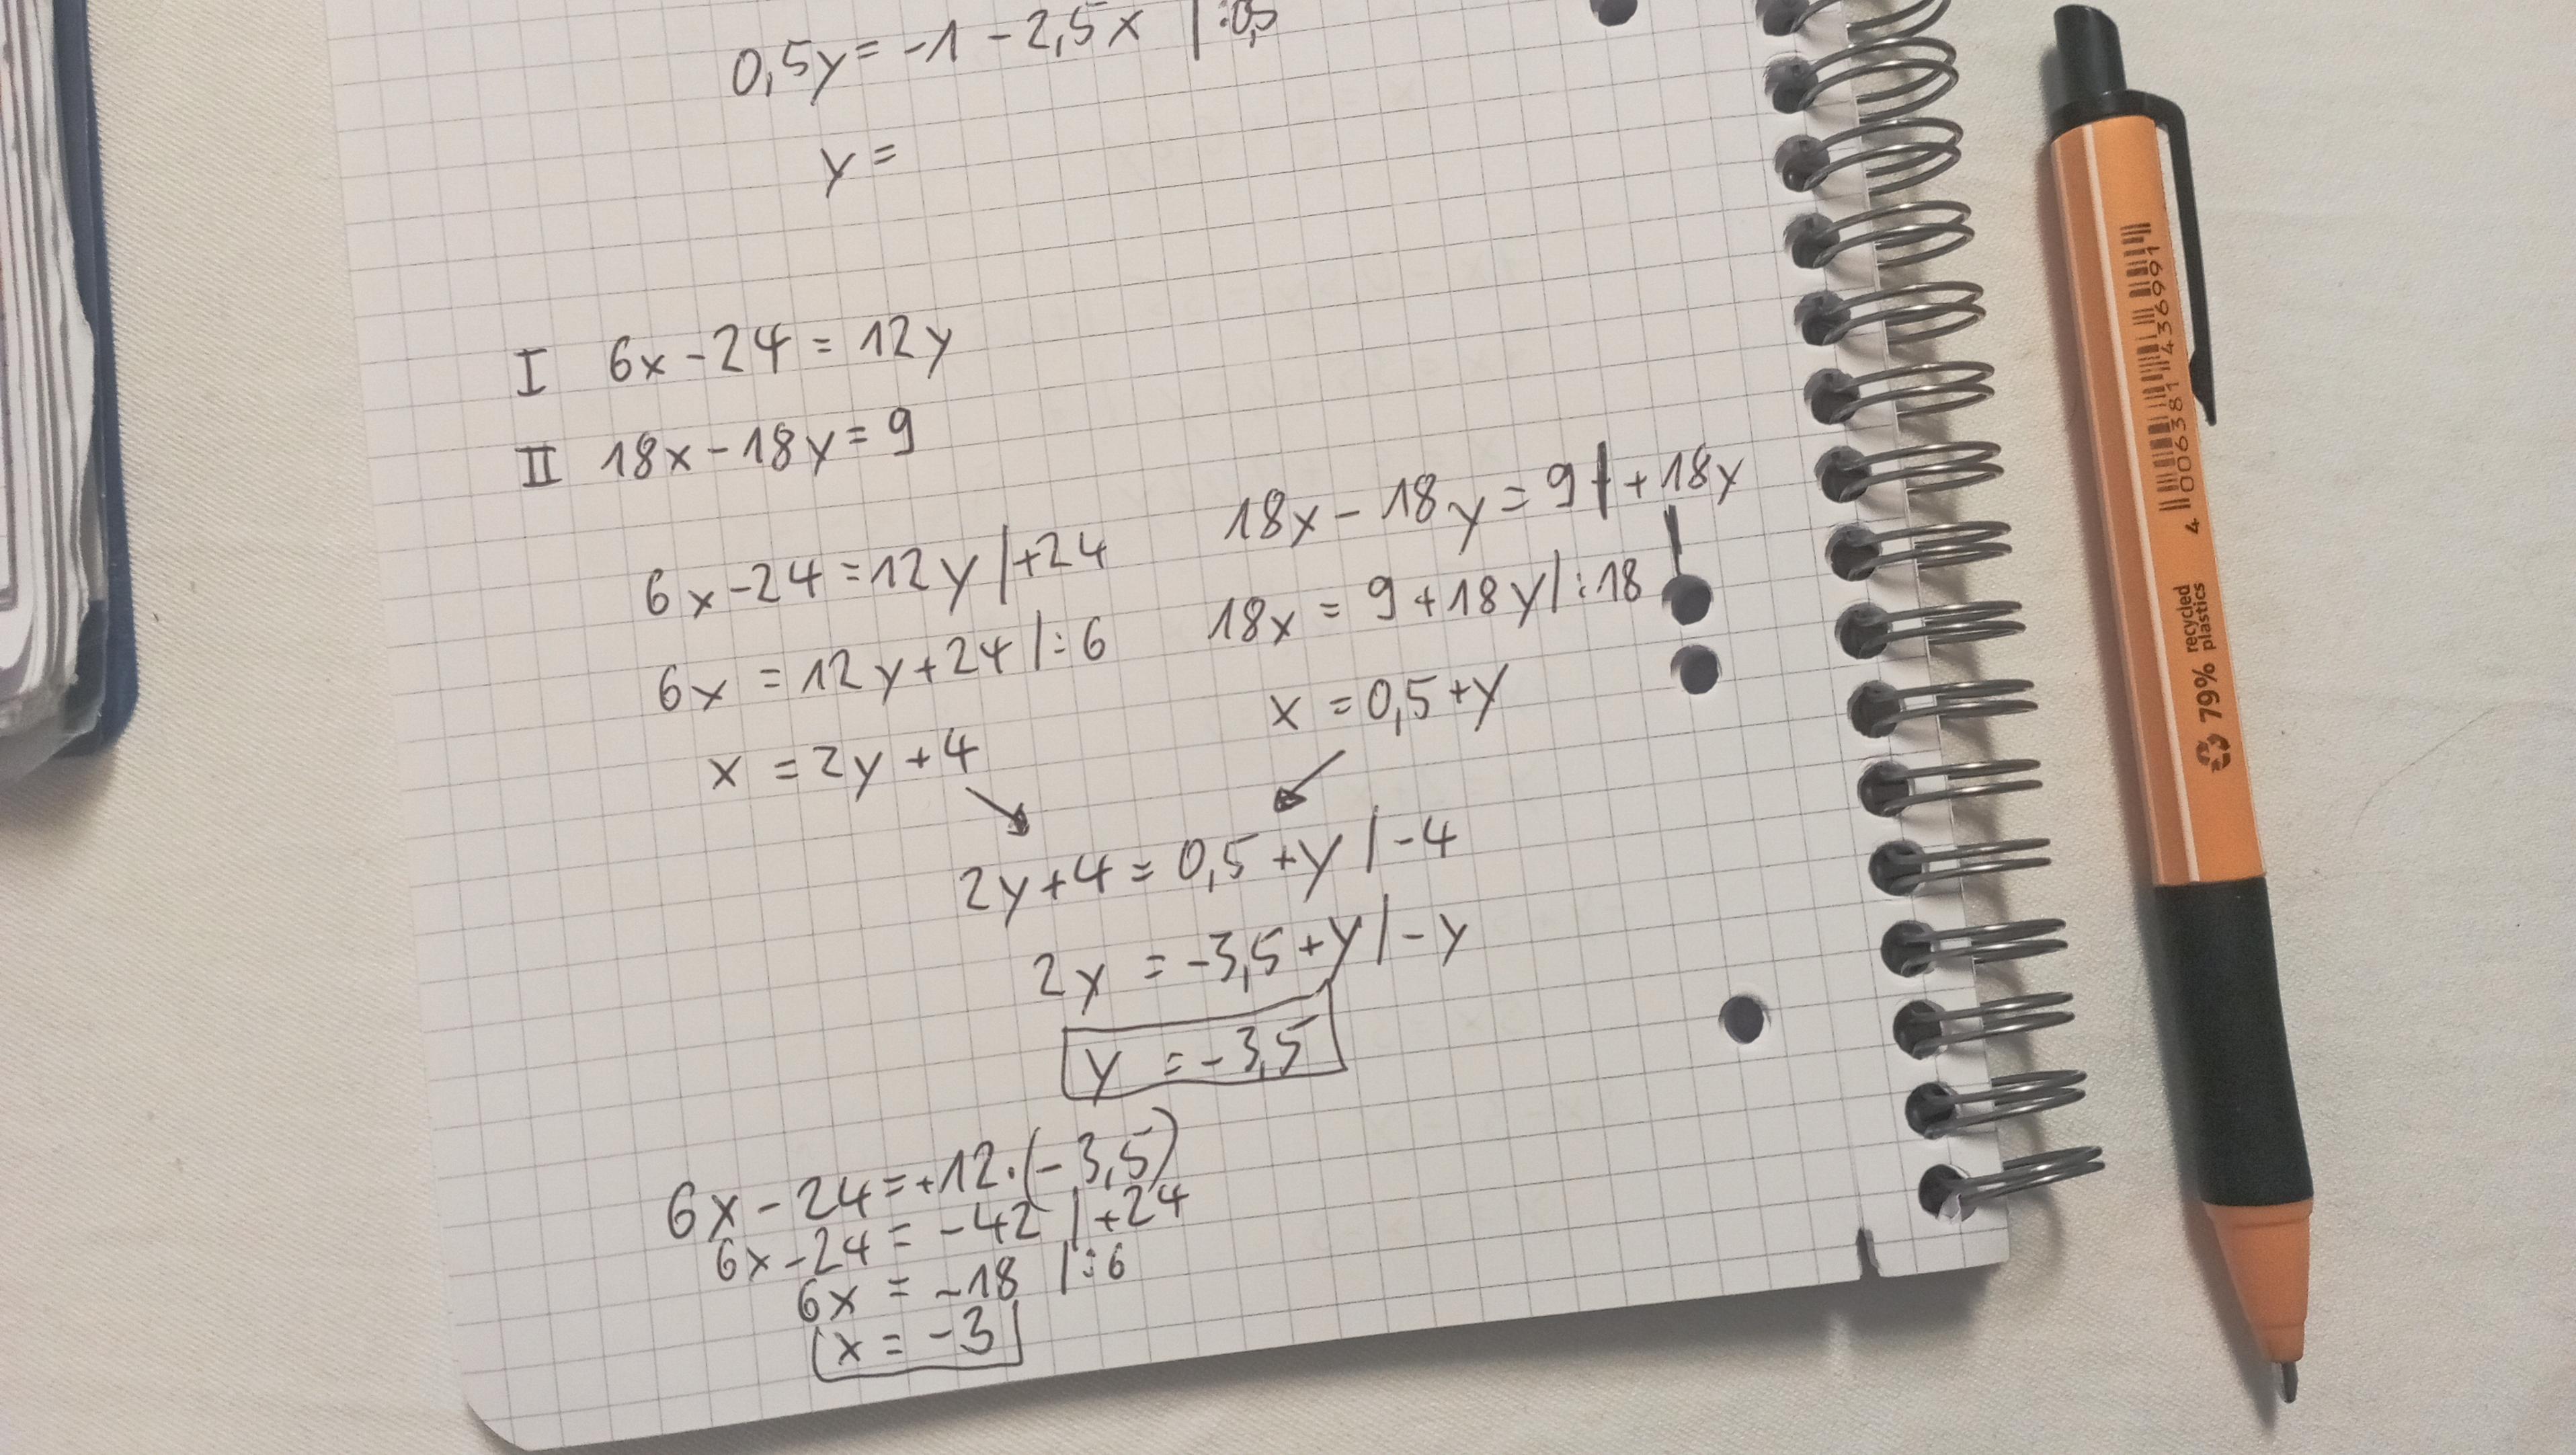 0,5y = -1 - 2,5x | :0,5
y =
I 6x - 24 = 12y
II 18x - 18y = 9
6x - 24 = 12y | +24
6x = 12y + 24 | :6
x = 2y + 4
18x - 18y = 9 | + 18y
18x = 9 + 18y | :18
x = 0,5 + y
2y + 4 = 0,5 + y | - 4
2y = -3,5 + y | - y
y = -3,5
6x - 24 = +12·(-3,5)
6x - 24 = -42 | +24
6x = -18 | :6
x = -3
4 006381 436991
79% recycled plastics